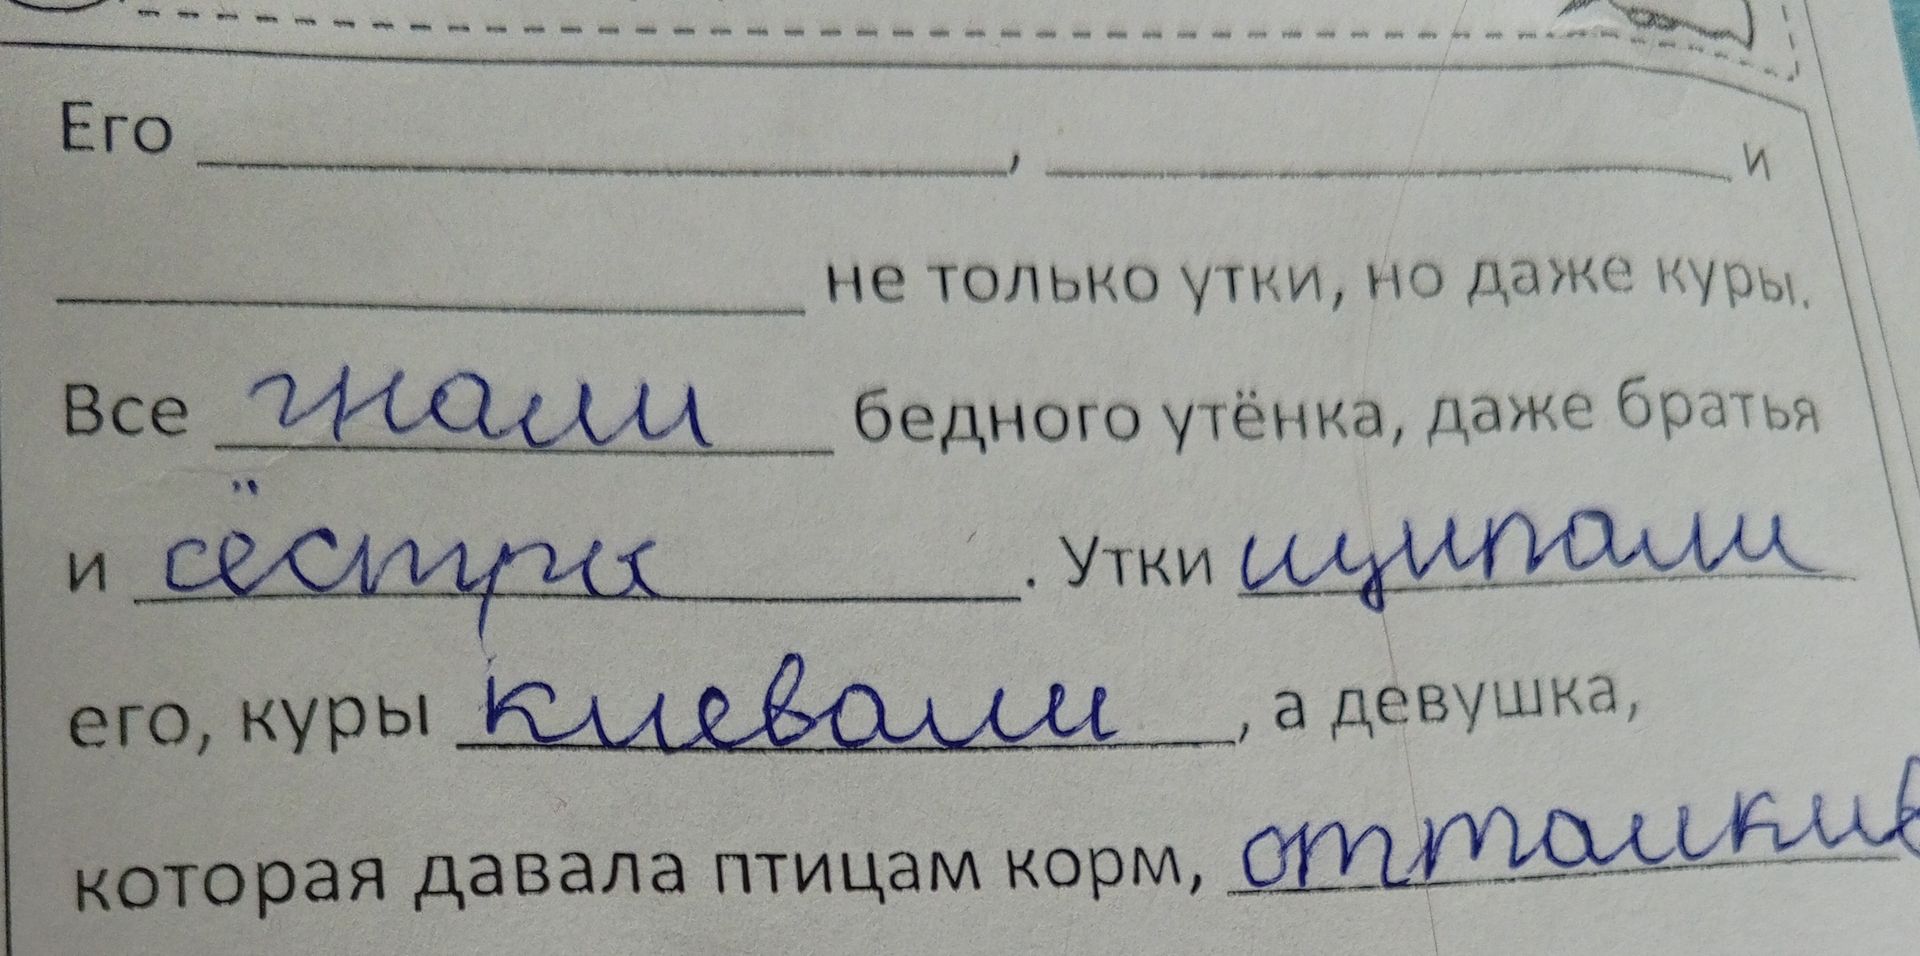 Его ____________, ____________ и
____________ не только утки, но даже куры.
Все гнали бедного утёнка, даже братья
и сёстры. Утки щипали
его, куры клевали, а девушка,
которая давала птицам корм, отталкив